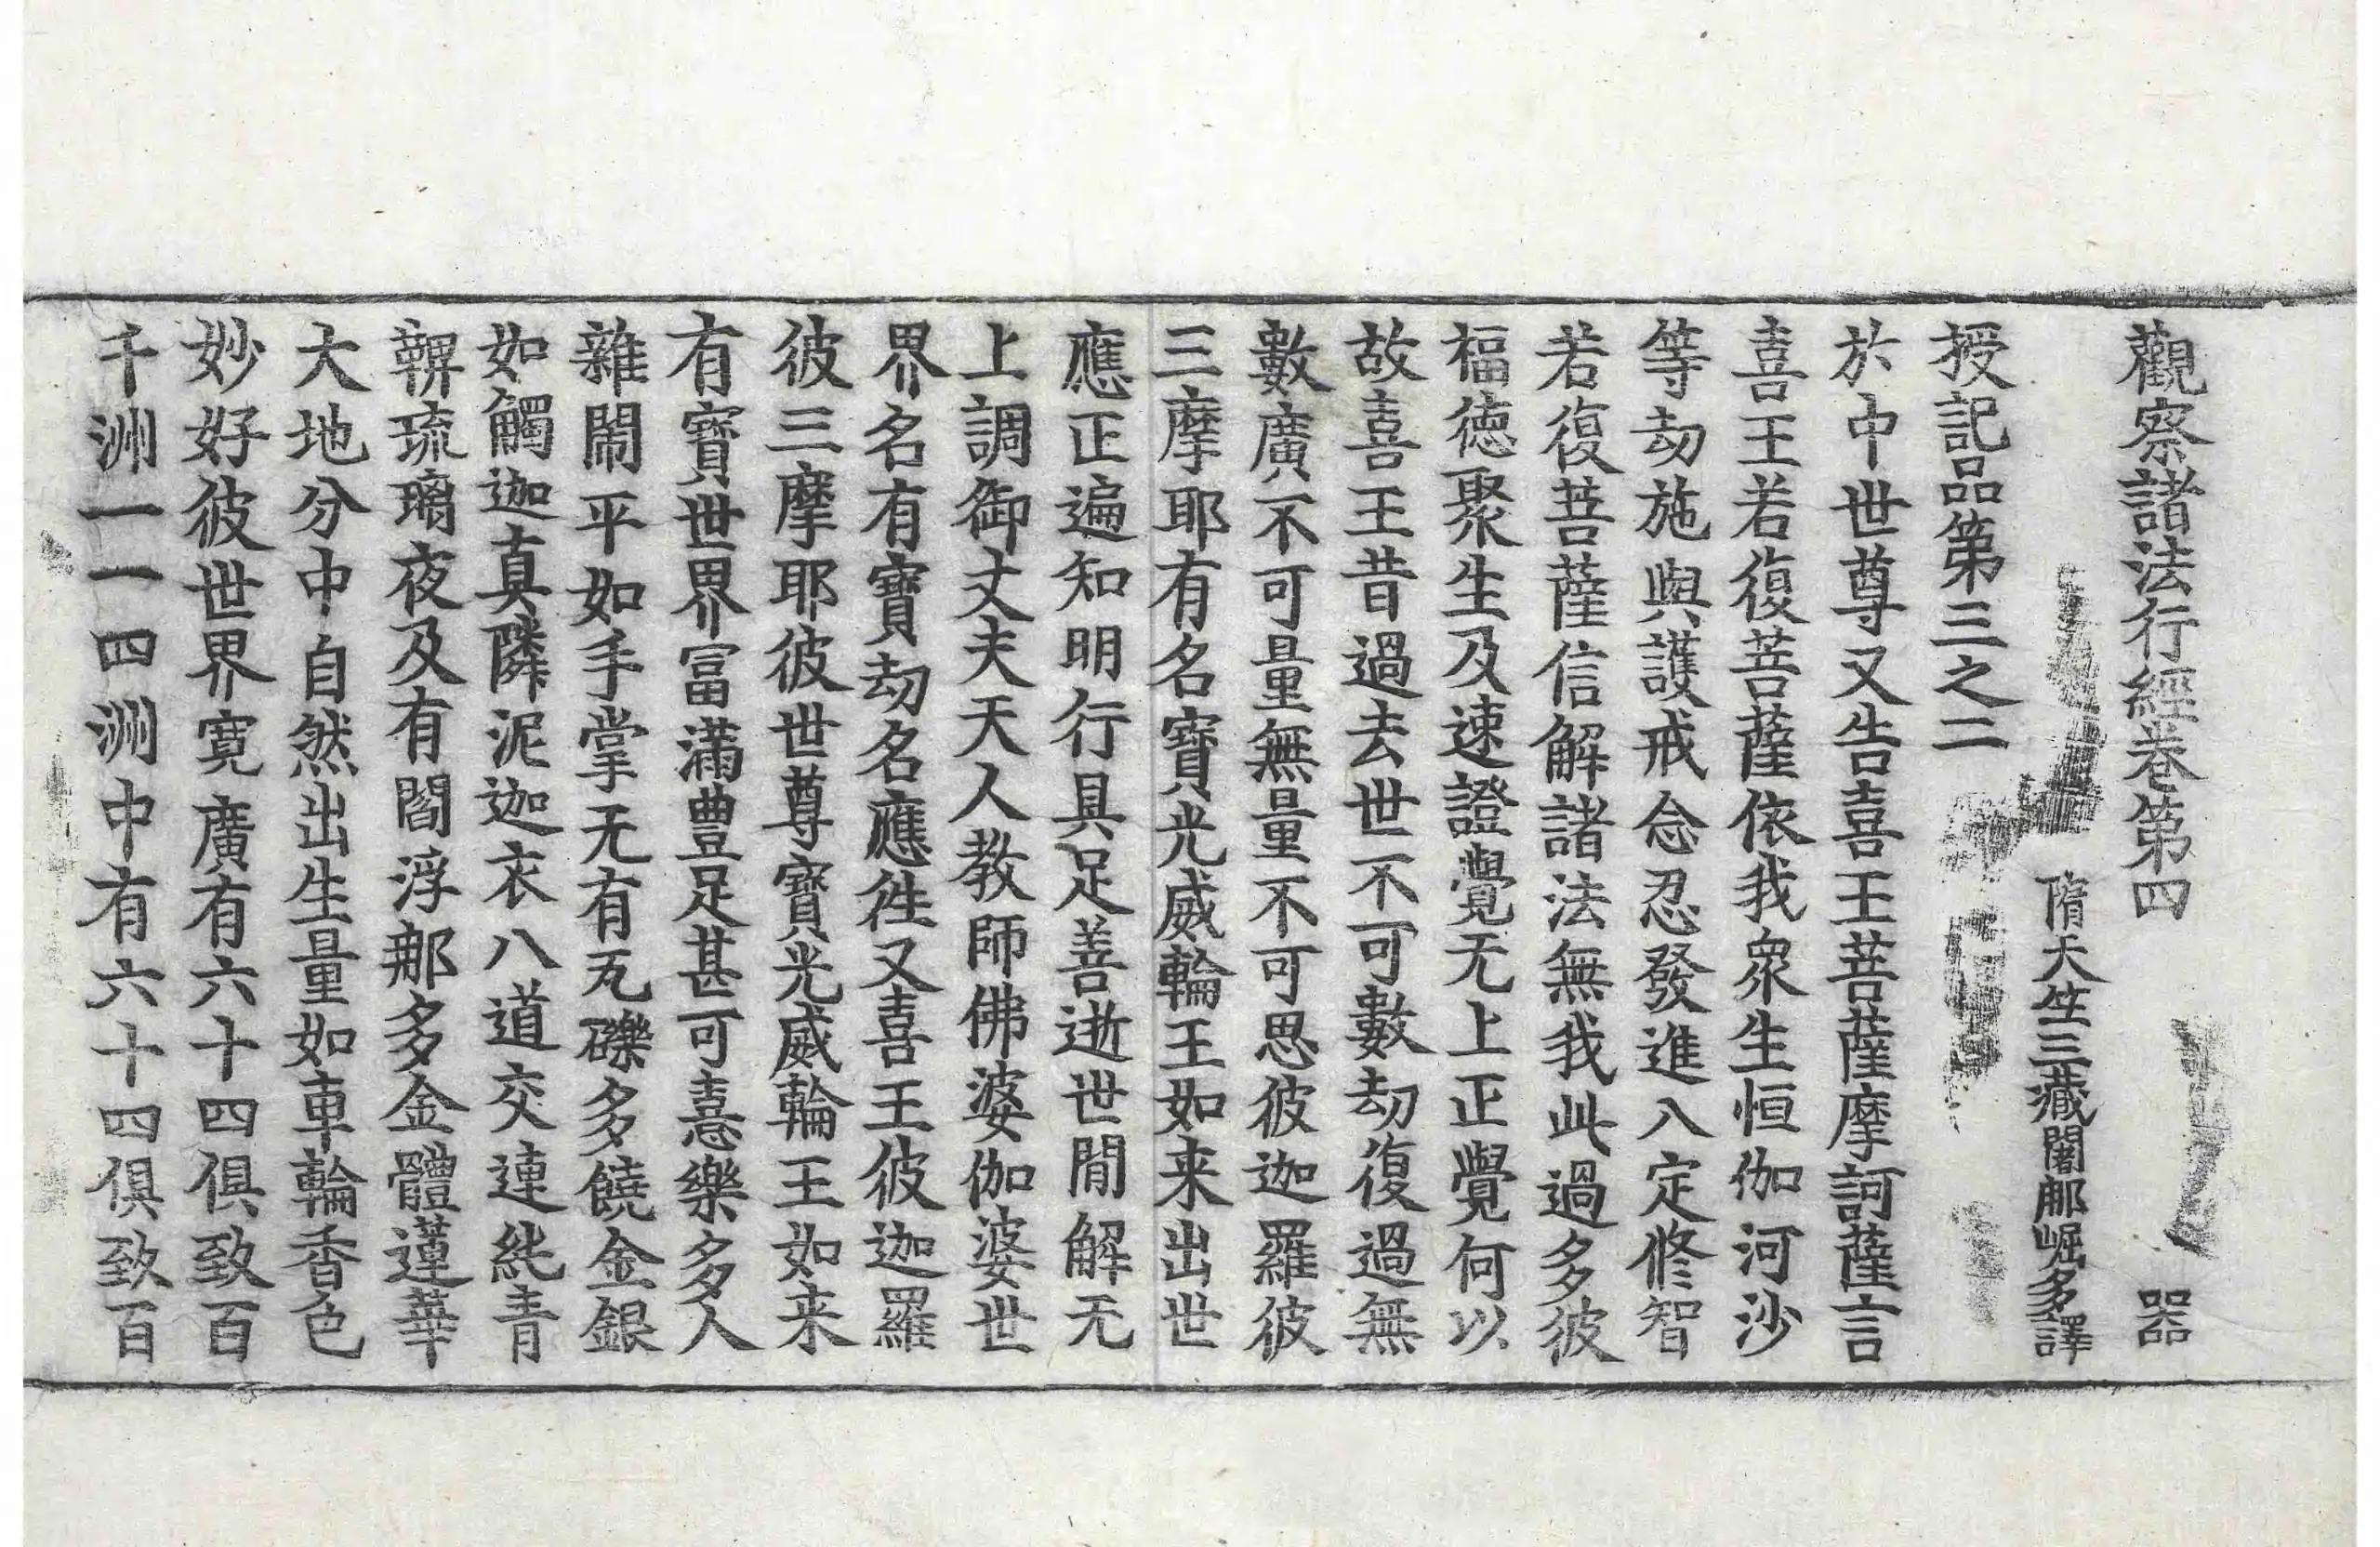 觀察諸法行經卷第四 器
隋天竺三藏闍那崛多譯
授記品第三之二
於中世尊又告喜王菩薩摩訶薩言
喜王若復菩薩依我衆生恒伽河沙
等劫施與護戒念忍發進入定修智
若復菩薩信解諸法無我此過多彼
福徳聚生及速證覺无上正覺何以
故喜王昔過去世不可數劫復過無
數廣不可量無量不可思彼迦羅彼
三摩耶有名寶光威輪王如来出世
應正遍知明行具足善逝世間解无
上調御丈夫天人教師佛婆伽婆世
界名有寶劫名應徃又喜王彼迦羅
彼三摩耶彼世尊寶光威輪王如来
有寶世界富滿豊足甚可憙樂多人
雜閙平如手掌无有瓦礫多饒金銀
如觸迦真隣泥迦衣八道交連紺青
鞞琉璃夜及有閻浮那多金體蓮華
大地分中自然出生量如車輪香色
妙好彼世界寬廣有六十四俱致百
千洲一一四洲中有六十四俱致百